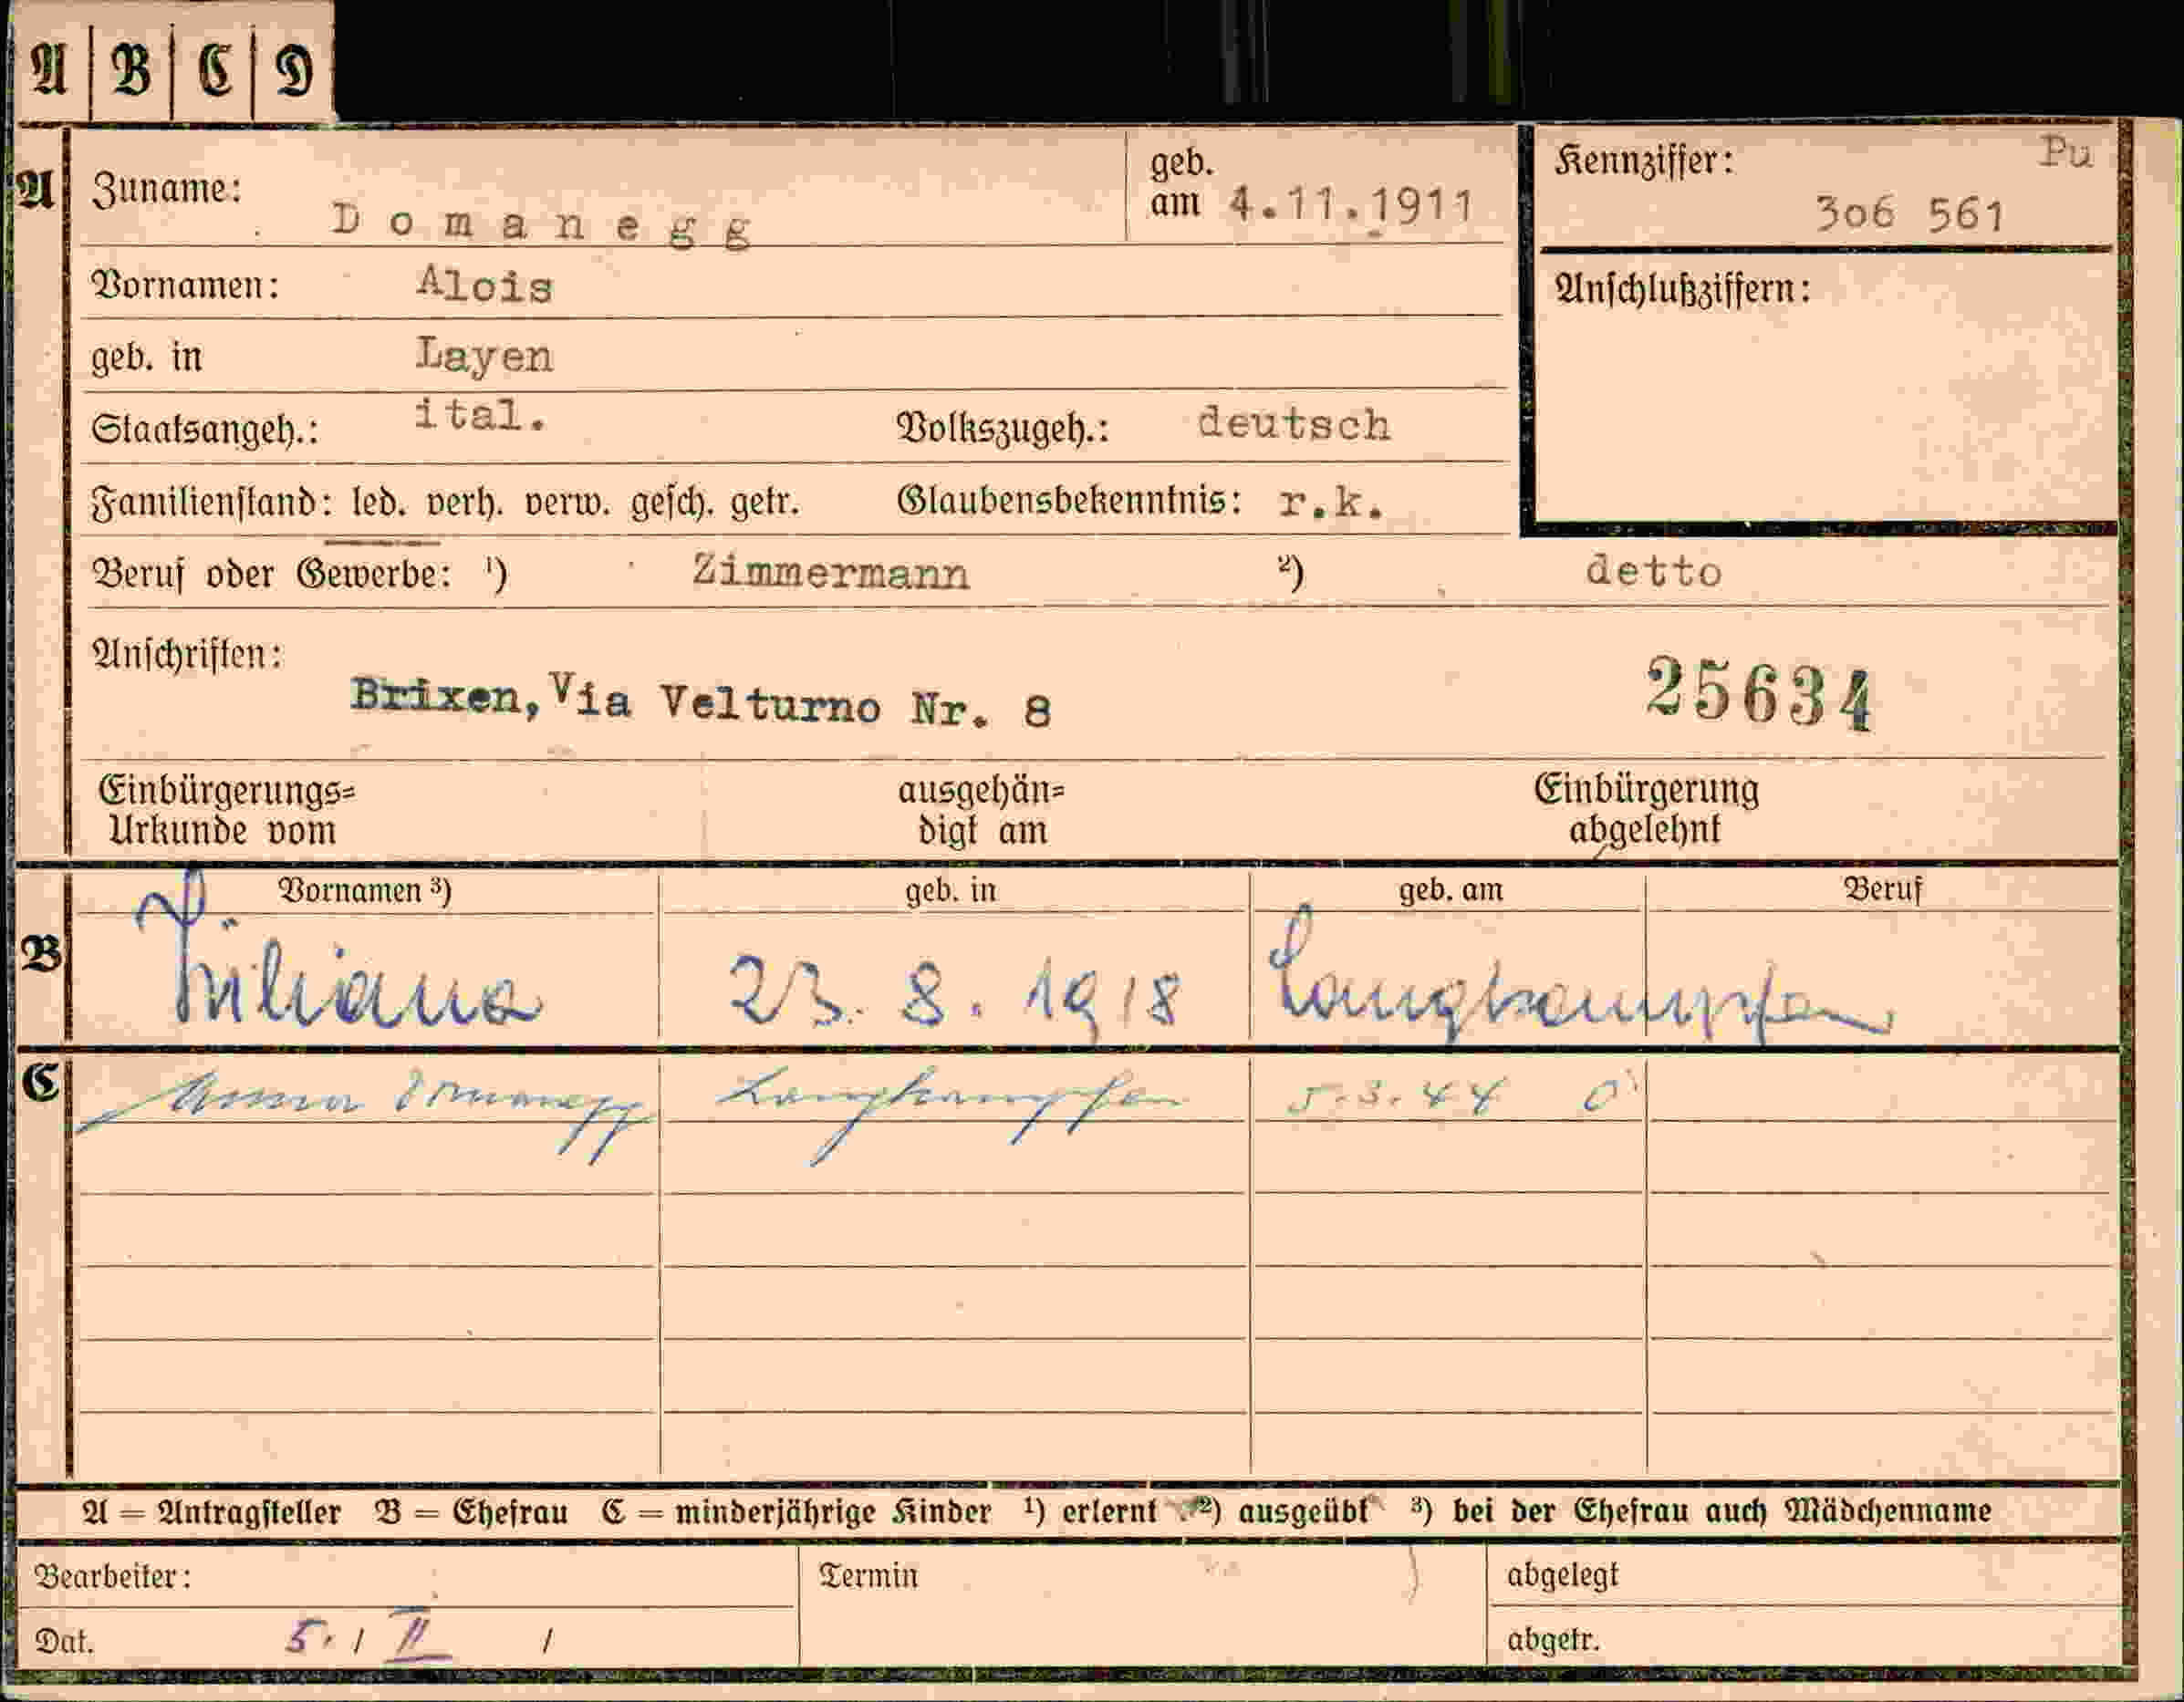 A B C D
A Zuname: Domanegg geb. am 4.11.1911 Kennziffer: Pu 306 561
Vornamen: Alois Anschlußziffern:
geb. in Layen
Staatsangeh.: ital. Volkszugeh.: deutsch
Familienstand: led. verh. verw. gesch. getr. Glaubensbekenntnis: r.k.
Beruf oder Gewerbe: ¹) Zimmermann ²) detto
Anschriften: Brixen, Via Velturno Nr. 8 25634
Einbürgerungs= ausgehän= Einbürgerung
Urkunde vom digt am abgelehnt
Vornamen ³) geb. in geb. am Beruf
B Juliana 23. 8. 1918 Langkampfen
C Anna Domanegg Langkampfen 5.3.44
A = Antragsteller B = Ehefrau C = minderjährige Kinder ¹) erlernt ²) ausgeübt ³) bei der Ehefrau auch Mädchenname
Bearbeiter: Termin abgelegt
Dat. 5. / II / abgetr.